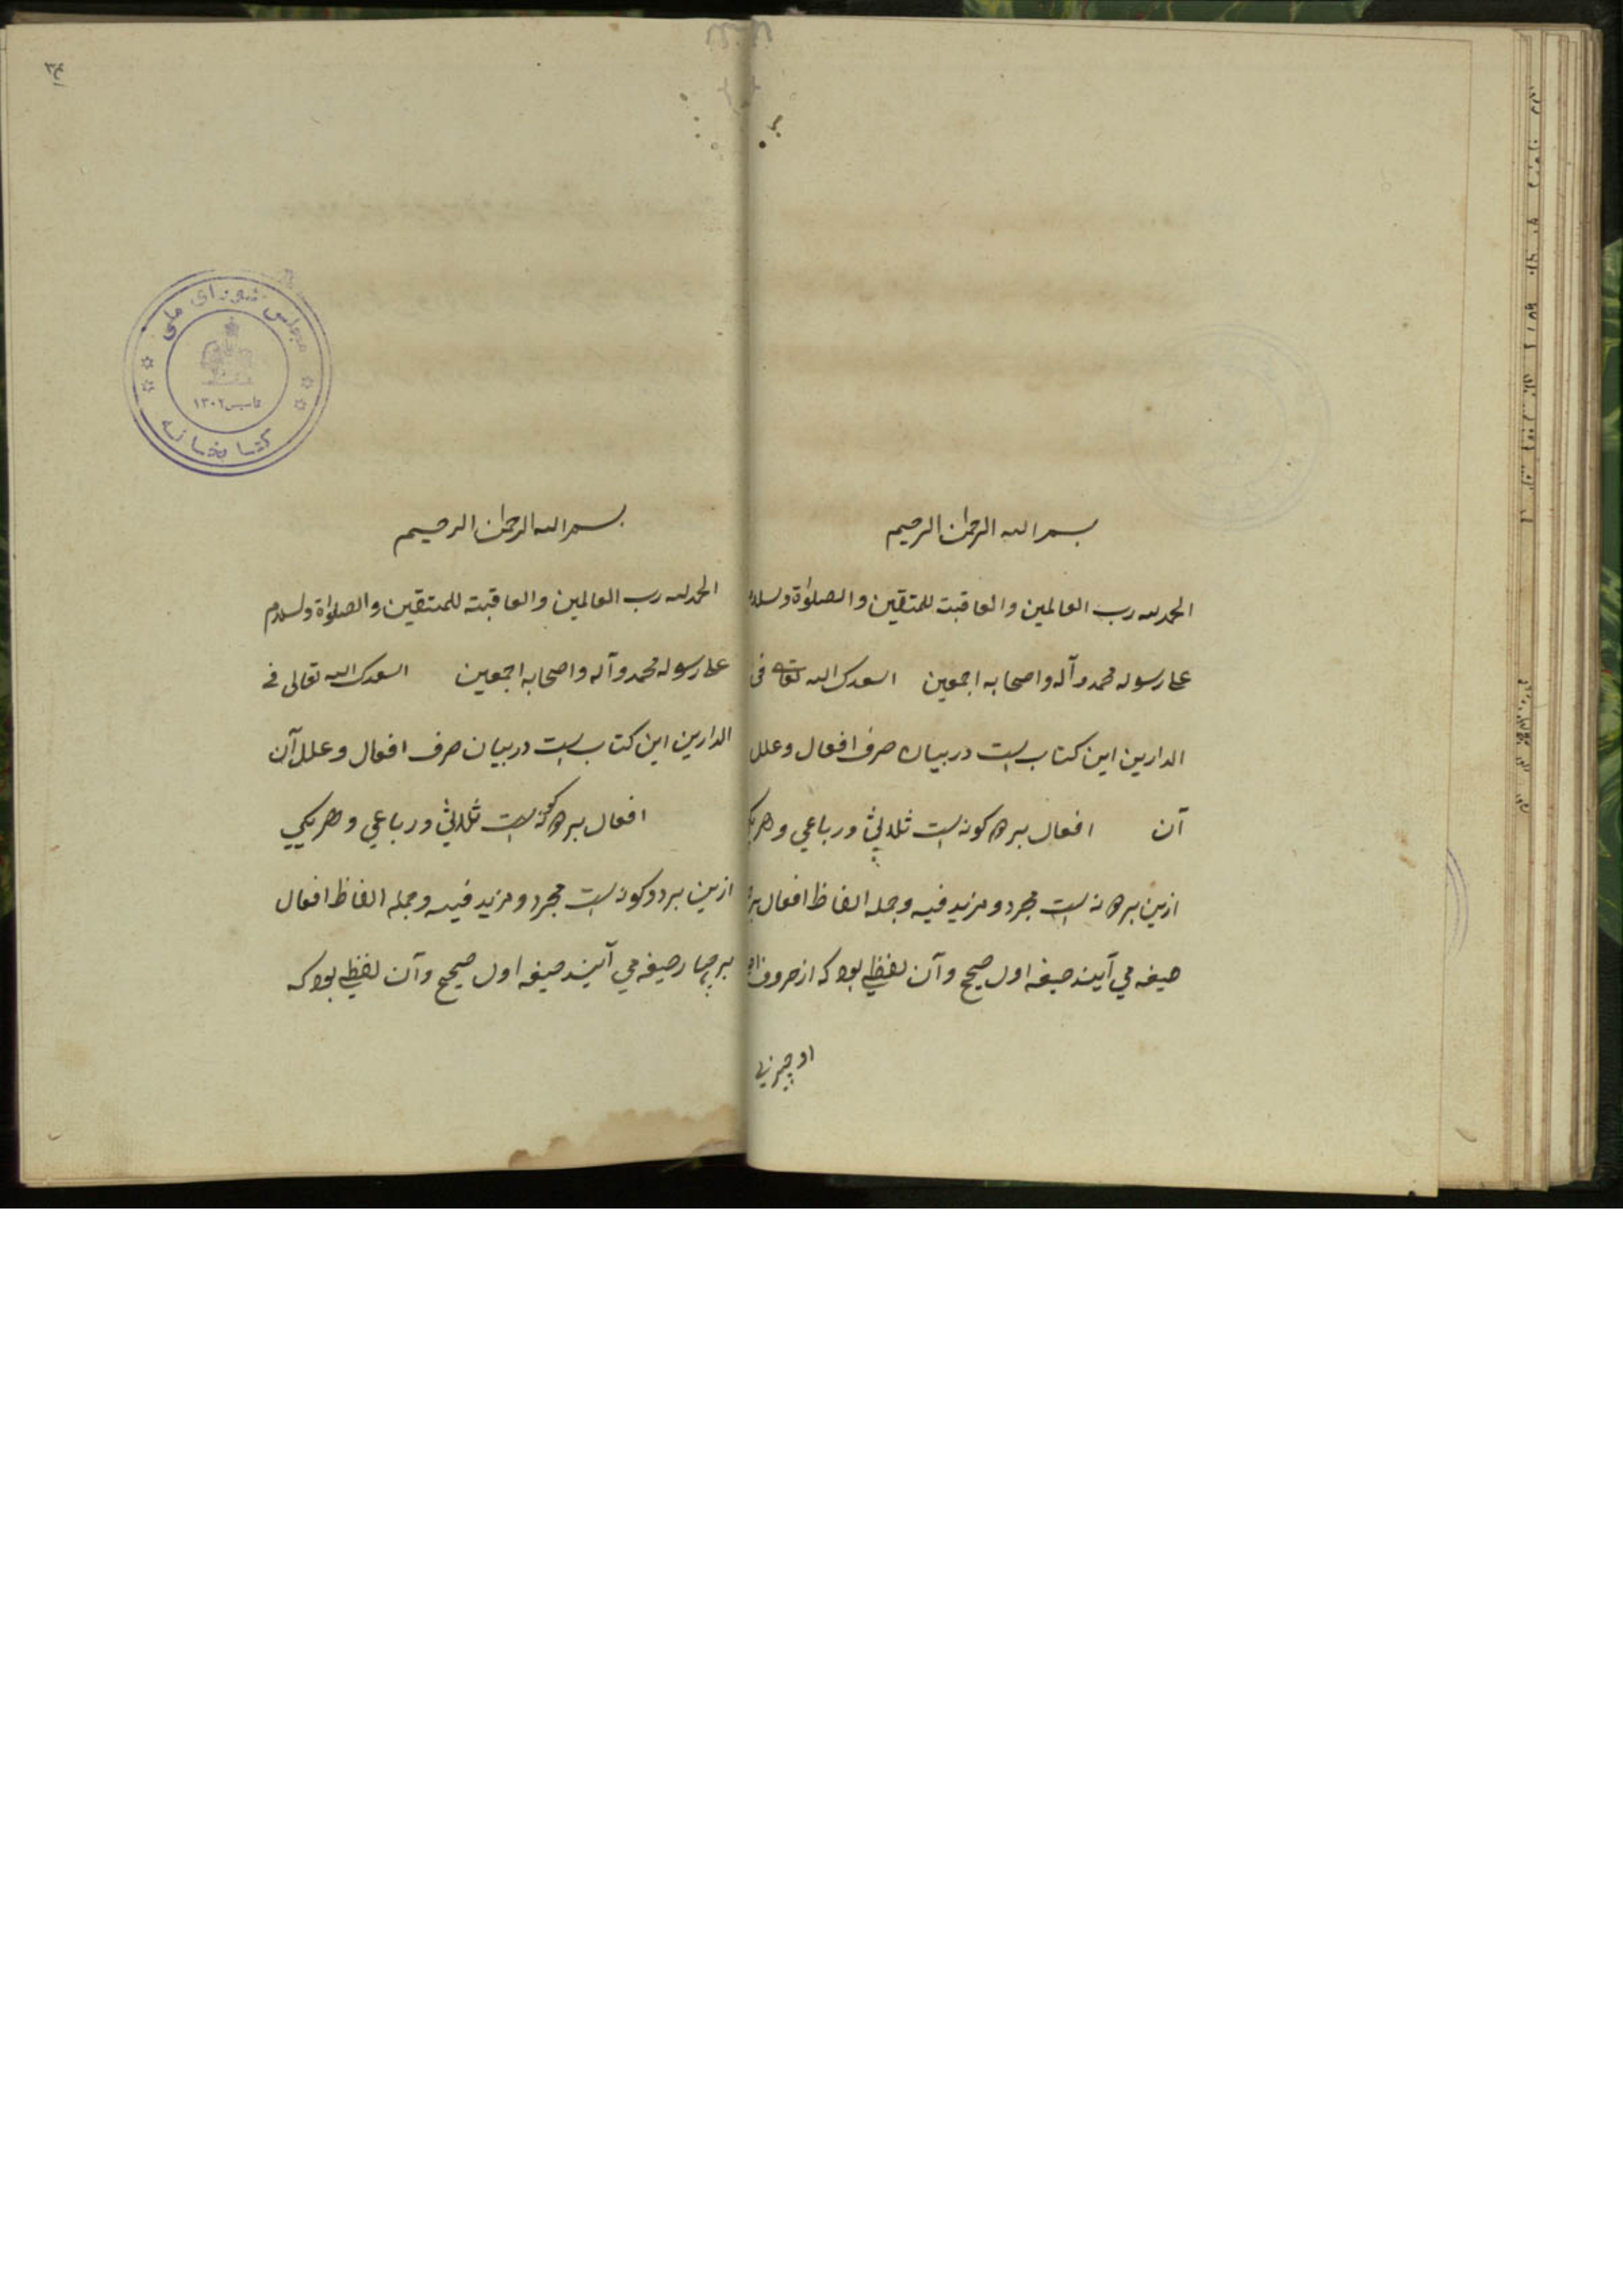 بسم الله الرحمن الرحیم
الحمد لله رب العالمین والعاقبته للمتقین والصلوٰة ولسلام
علی رسوله محمد وآله واصحابه اجمعین اسعدک الله تعالی فی
الدارین این کتاب بست در بیان صرف افعال وعلل
آن افعال بر دو کونه بست ثلاثی ورباعی وهریک
ازین بر دو نه بست مجرد ومزید فیه وجمله الفاظ افعال
صیغه می آیند صیغه اول صحیح وآن لفظی بود که از حروف
او چیزی
۳۴
مجلس شورای ملی
تاسیس ۱۳۰۲
کتابخانه
بسم الله الرحمن الرحیم
الحمد لله رب العالمین والعاقبته للمتقین والصلوٰة ولسلام
علی رسوله محمد وآله واصحابه اجمعین اسعدک الله تعالی فی
الدارین این کتاب بست در بیان صرف افعال وعلل آن
افعال بر دو کونه بست ثلاثی ورباعی وهریکی
ازین بر دو کونه بست مجرد ومزید فیه وجمله الفاظ افعال
بر چهار صیغه می آیند صیغه اول صحیح وآن لفظی بود که